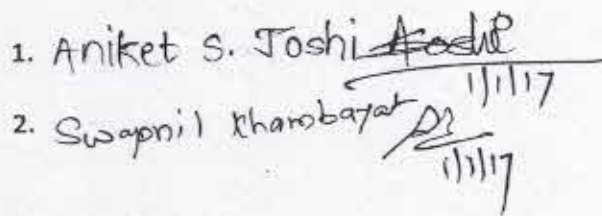 1. Aniket S. Joshi
1/1/17
2. Swapnil Kharobayat
1/1/17